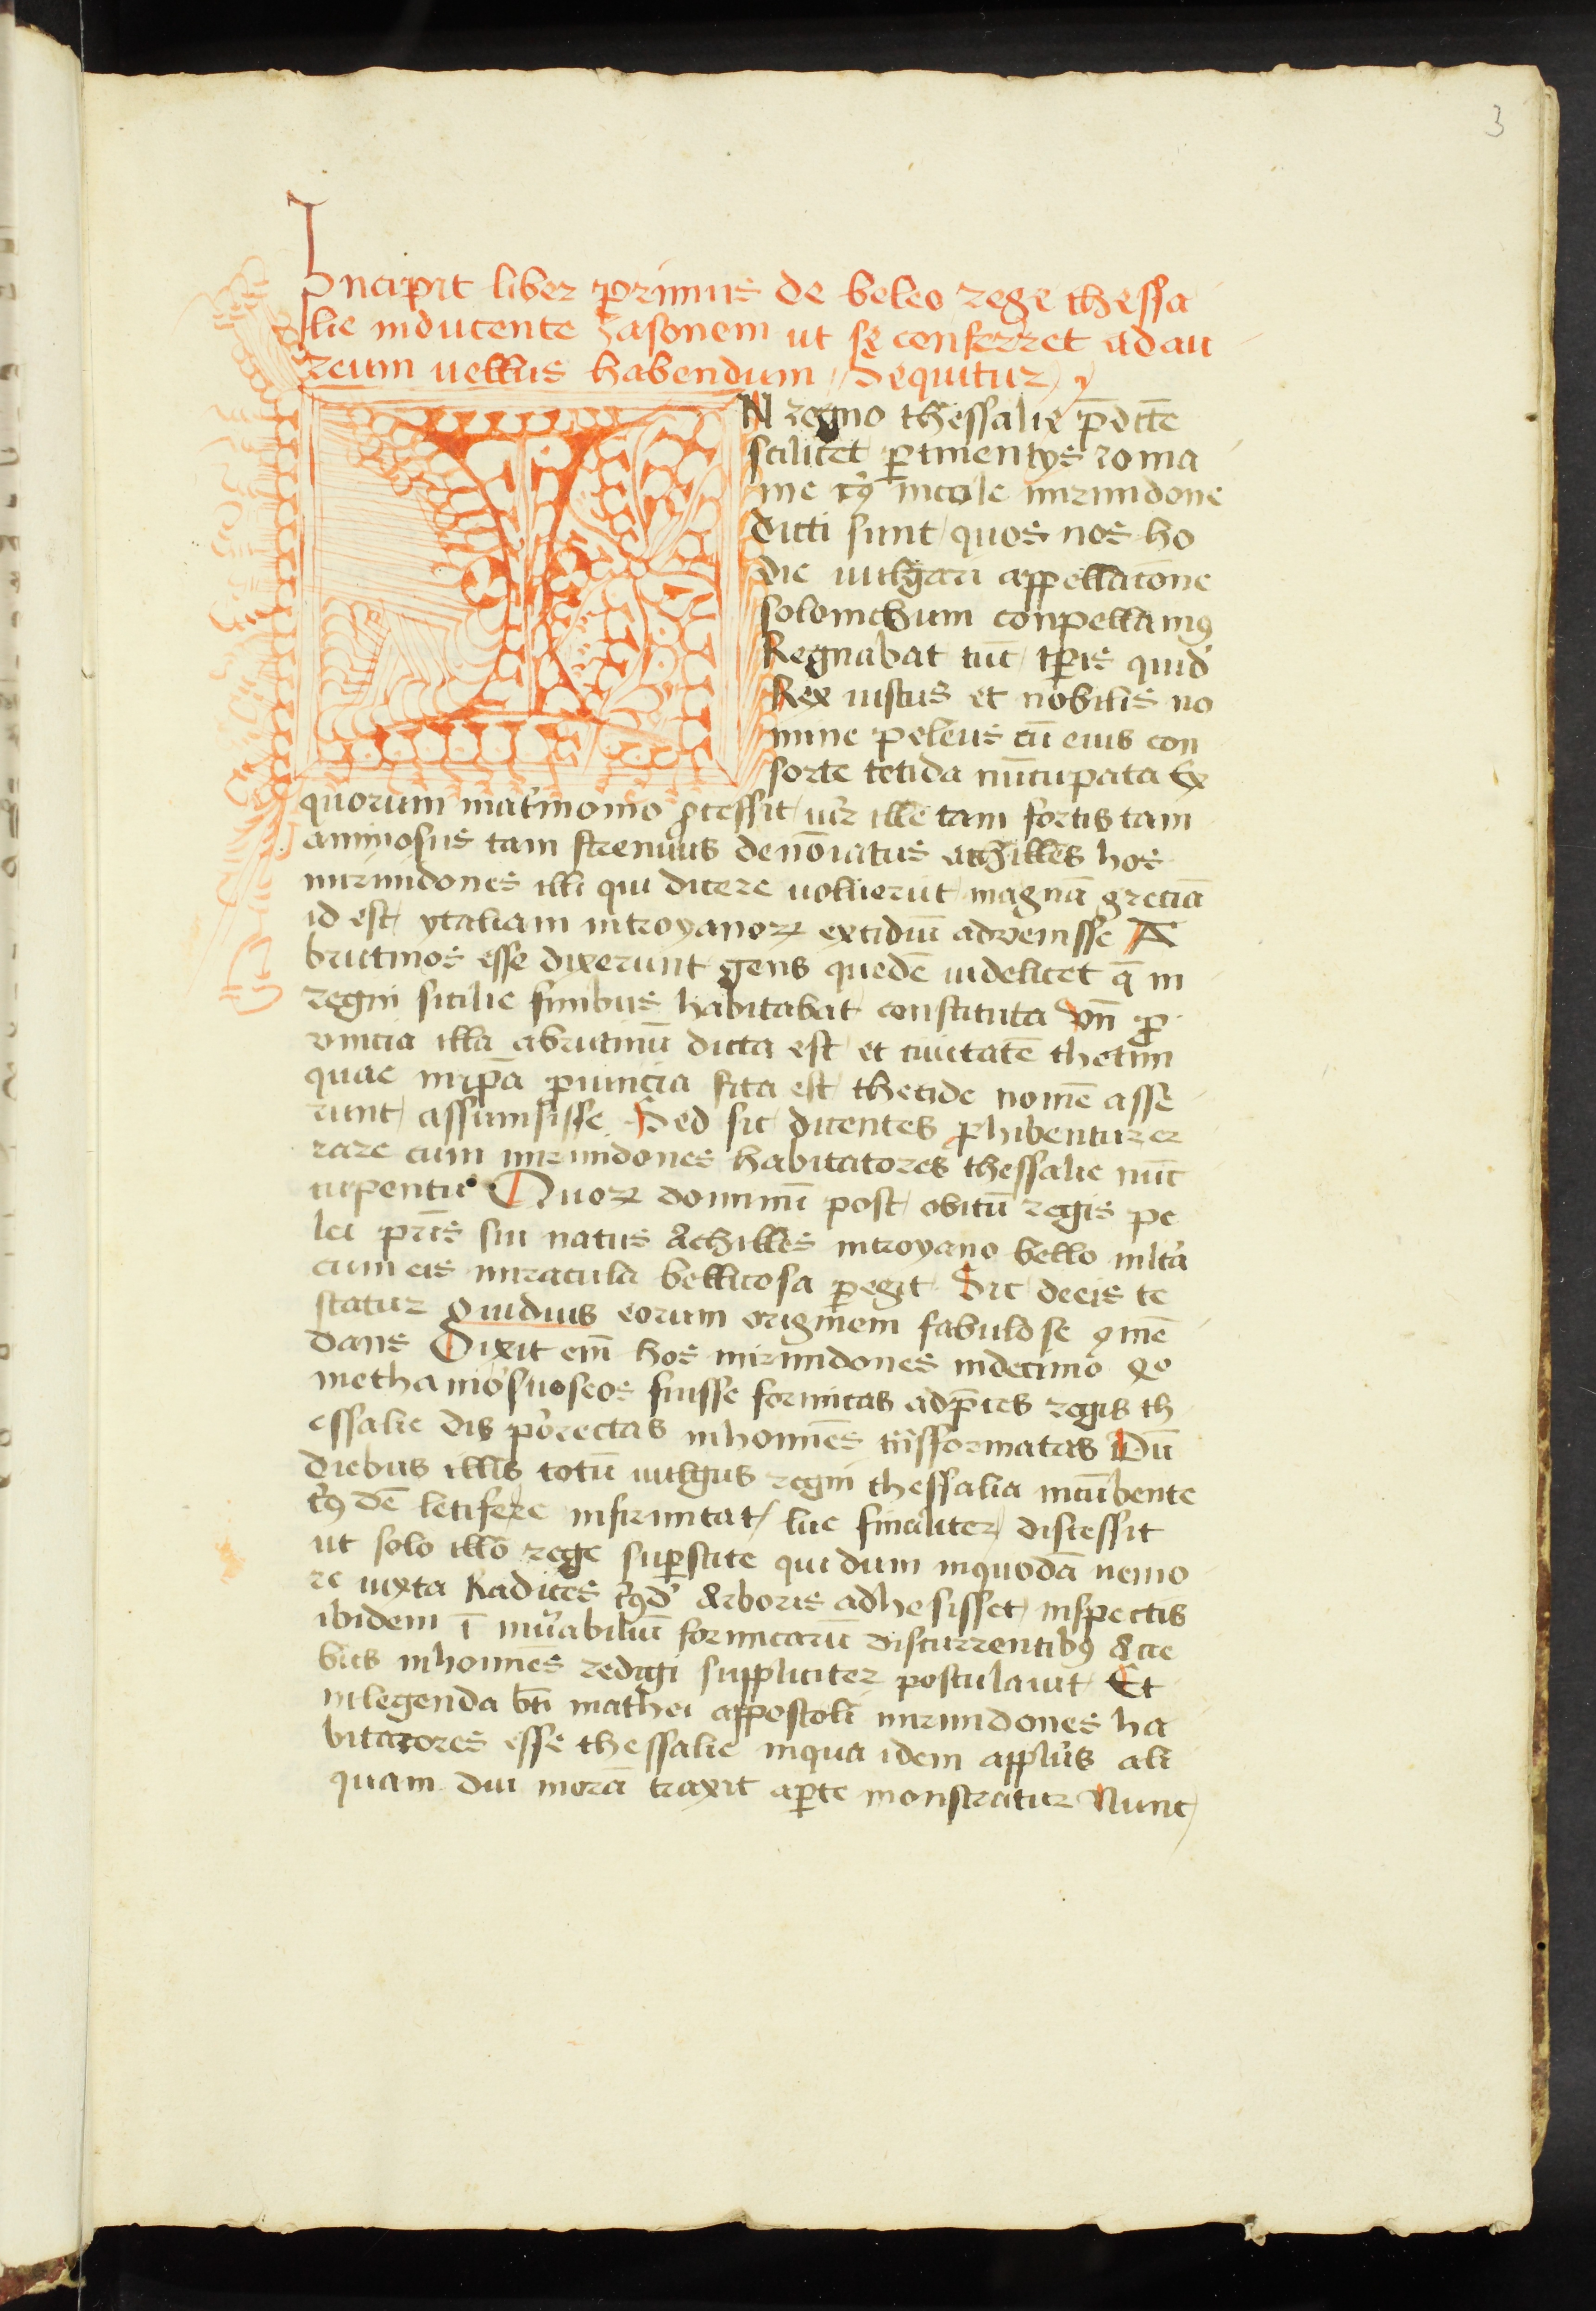 3
Incipit liber primus de beleo rege thessa
lie inducente Iasonem ut se conferret ad au
reum uellus habendum Sequitur
IN regno thessalie p̄dcte
scilicet ꝑtinentijs roma
nie cꝰ incole mirmidone
dicti sunt quos nos ho
die uulgari appellatōne
solonichum conpellamꝰ
Regnabat tūc tꝑis quid̄
Rex iustus et nobilis no
mine peleus cū eius con
sorte tetida nūcupata Ex
quorum mat̓imonio ꝓcessit uir ille tam fortis tam
animosus tam strenuus denōiatus achilles hos
mirmidones illi qui dicere uoluerūt magnā greciā
id est ytaliam introyanoꝝ excidiū advenisse A
brutinos esse dixerunt gens quedē uidelicet q̄ in
regni sicilie finibus habitabat constituta vn̄ ꝓ
vincia illa abrutinū dicta est et ciuitatē thetim
quae inip̄a ꝓuincia sita est thetide nomē asse
runt assumsisse Sed sic dicentes ꝑhibentur er
rare cum mirmidones habitatores thessalie nūc
cupentur Quoꝝ dominiū post obitū regis pe
lei pr̄is sui natus Achilles introyano bello mlta
cum eis miracula bellicosa ꝑegit Sic de eis te
statur ouidius eorum originem fabulose ꝯmē
dans Dixit em̄ hos mirmidones indecimo
methamo suo seos fuisse formicas ad p̄ces regis th
essalie dis porectas inhomīes trāsformatas Dū
diebus illis totū uulgus regni thessalia incūbente
cꝰdē letifere infirmitat lue finaliter discessit
ut solo illo rege suꝑstite qui dum inquodā nemo
re iuxta Radices cꝰd̄ Arboris adhesisset inspectis
ibidem ī mūabiliū formicarū discurrentibꝰ Acie
bus inhomīes redigi suppliciter postulauit Et
inlegenda bti mathei appostoli mirmidones ha
bitatores esse thessalie inqua idem appl̄us ali
quam diu morā traxit aꝑte monstratur Nunc